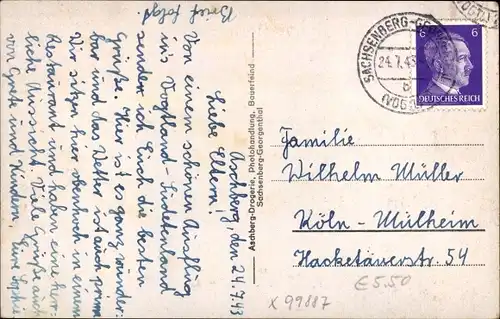 Brief folgt.
Aschberg, den 24.7.43
Liebe Eltern!
Von einem schönen Ausflug
ins Vogtland-Sudetenland
senden ich Euch die besten
Grüße. Hier ist es ganz wunder-
bar und das Wetter ist auch prima
Wir sitzen hier oben hoch in einem
Restaurant und haben eine herr-
liche Aussicht. Viele Grüße auch
von Grete und Kindern. Eure Sophie
Aschberg-Drogerie, Photohandlung, Bauerfeind
Sachsenberg-Georgenthal
SACHSENBERG-GEORGENTHAL
24.7.43
b
(VOGTL)
(VOGTL)
6 6
DEUTSCHES REICH
Familie
Wilhelm Müller
Köln-Mülheim
Hacketäuerstr. 54
€5.50
X 99887